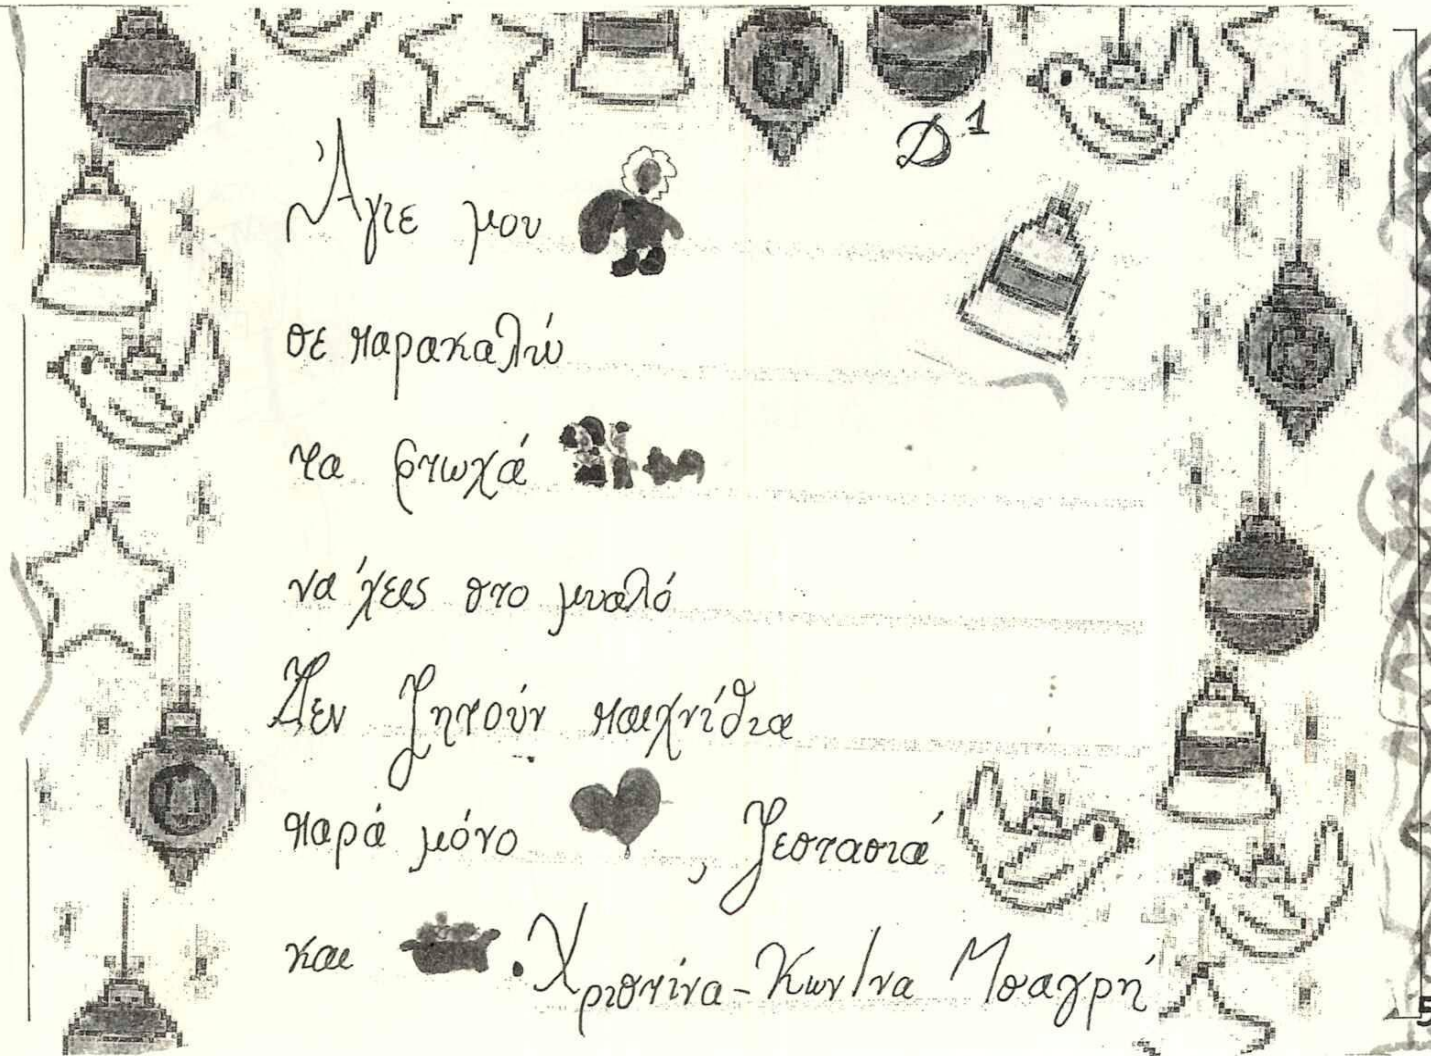 Δ1
Άγιε μου
σε παρακαλώ
τα φτωχά
να 'χεις στο μυαλό
Δεν ζητούν παιχνίδια
παρά μόνο , ζεστασιά
και . Χριστίνα-Κων/να Μπαγρή
5